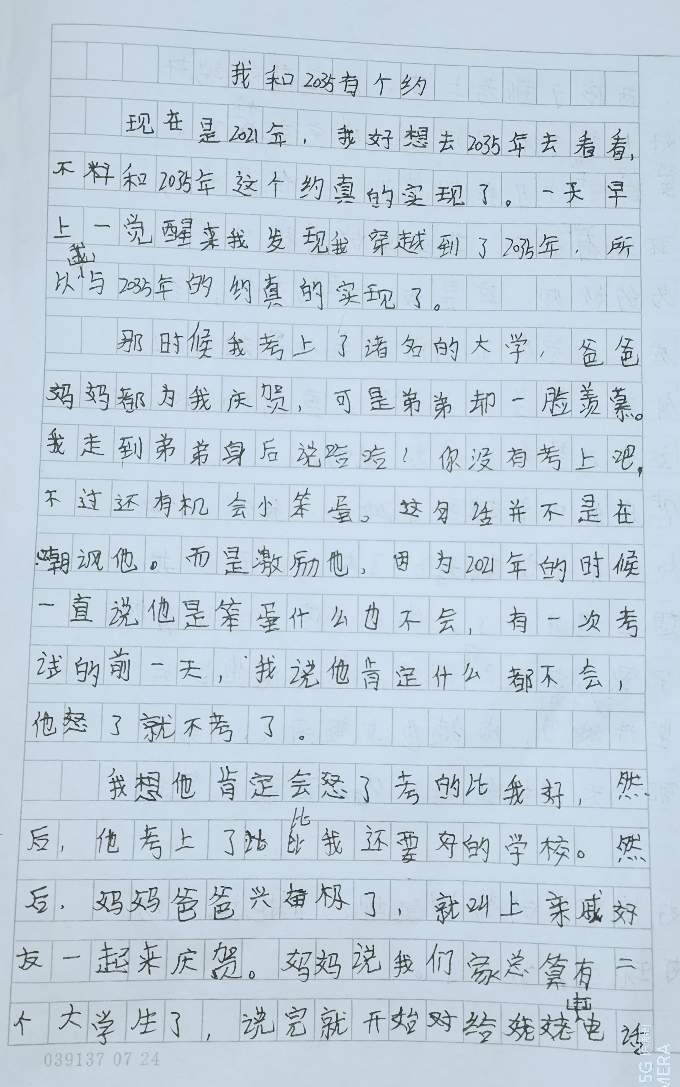 我和2035有个约
现在是2021年，我好想去2035年去看看，
不料和2035年这个约真的实现了。一天早
上一觉醒来我发现我穿越到了2035年，所
以我与2035年的约真的实现了。
那时候我考上了诸名的大学，爸爸
妈妈都为我庆贺，可是弟弟却一脸羡慕。
我走到弟弟身后说哈哈！你没有考上吧，
不过还有机会小笨蛋。这句话并不是在
嘲讽他。而是激励他，因为2021年的时候
一直说他是笨蛋什么也不会，有一次考
试的前一天，我说他肯定什么都不会，
他怒了就不考了。
我想他肯定会怒了考的比我好，然
后，他考上了比我还要好的学校。然
后，妈妈爸爸兴极了，就叫上亲戚好
友一起来庆贺。妈妈说我们家总算有二
个大学生了，说完就开始对给姥姥打电话
039137 07 24
5G
CAMERA